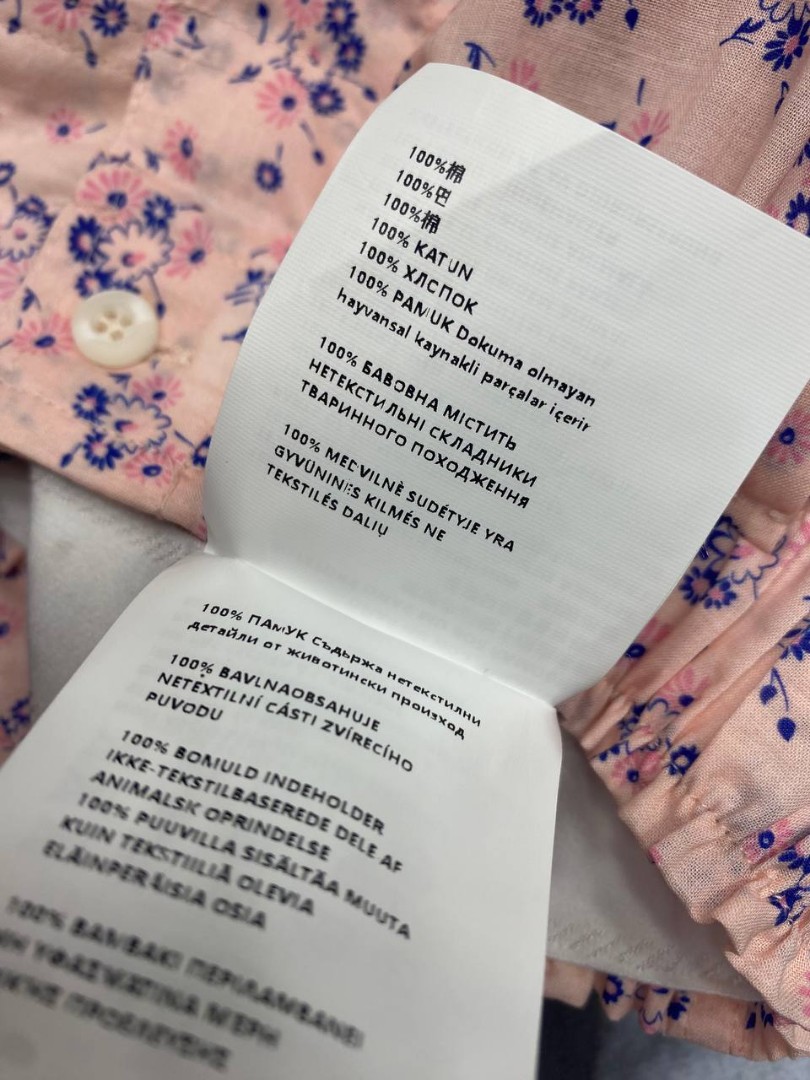 100%棉
100%면
100%棉
100% KATUN
100% ХЛОПОК
100% PAMUK Dokuma olmayan
hayvansal kaynakli parçalar içerir
100% БАВОВНА МІСТИТЬ
НЕТЕКСТИЛЬНІ СКЛАДНИКИ
ТВАРИННОГО ПОХОДЖЕННЯ
100% MEDVILNĖ SUDĖTYJE YRA
GYVŪNINĖS KILMĖS NE
TEKSTILĖS DALIŲ
100% ПАМУК Съдържа нетекстилни
детайли от животински произход
100% BAVLNAOBSAHUJE
NETEXTILNÍ CÁSTI ZVÍRECÍHO
PUVODU
100% BOMULD INDEHOLDER
IKKE-TEKSTILBASEREDE DELE AF
ANIMALSK OPRINDELSE
100% PUUVILLA SISÄLTÄA MUUTA
KUIN TEKSTIILIÄ OLEVIA
ELÄINPERÄISIA OSIA
100% ΒΑΜΒΑΚΙ ΠΕΡΙΛΑΜΒΑΝΕΙ
ΜΗ ΥΦΑΣΜΑΤΙΝΑ ΜΕΡΗ
ΠΡΟΕΛΕΥΣΗΣ